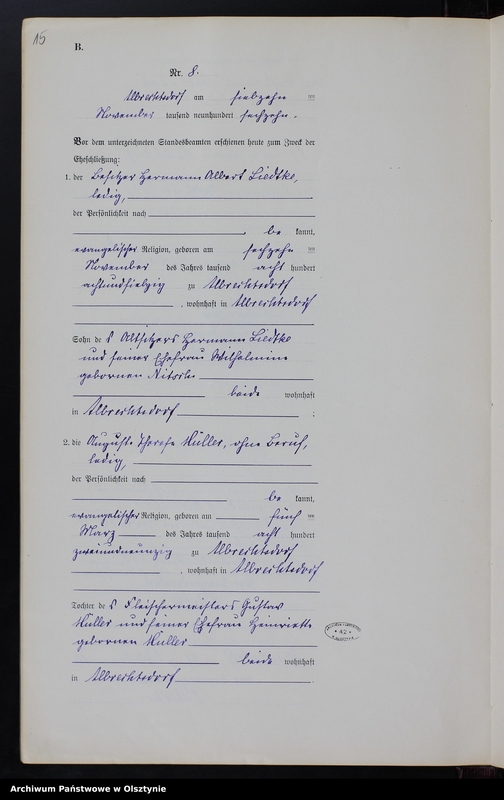 15
B.
Nr. 8.
Albrechtsdorf am siebzehn ten
November tausend neunhundert sechzehn.
Vor dem unterzeichneten Standesbeamten erschienen heute zum Zweck der
Eheschließung:
1. der Besitzer Hermann Albert Liedtke,
ledig,
der Persönlichkeit nach
be kannt,
evangelischer Religion, geboren am sechzehn ten
November des Jahres tausend acht hundert
achtundsiebzig zu Albrechtsdorf
, wohnhaft in Albrechtsdorf
Sohn des Altsitzers Hermann Liedtke
und seiner Ehefrau Wilhelmine
geborenen
beide wohnhaft
in Albrechtsdorf ;
2. die Auguste Therese Müller, ohne Beruf,
ledig,
der Persönlichkeit nach
be kannt,
evangelischer Religion, geboren am fünf ten
März des Jahres tausend acht hundert
zweiundneunzig zu Albrechtsdorf
, wohnhaft in Albrechtsdorf
Tochter des Fleischermeisters Gustav
Müller und seiner Ehefrau Henriette
geborenen Müller
* 42 *
beide wohnhaft
in Albrechtsdorf.
Archiwum Państwowe w Olsztynie